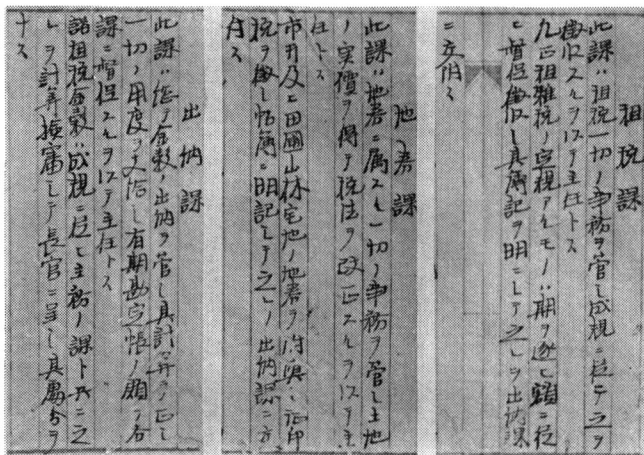 租税課
此課ハ租税一切ノ事務ヲ管シ成規ニ拠テ之ヲ
徴収スルヲ以テ主任トス
凡正租雑税ノ定規アルモノハ期ヲ逐ヒ額ニ拠
ヒ督促徴収シ其簿記ヲ明ニシテ之レヲ出納課
ニ交附ス
地券課
此課ハ地券ニ属スル一切ノ事務ヲ管シ土地
ノ実價ヲ得テ税法ヲ改正スルヲ以テ主
任トス
市井及ヒ田圃山林宅地ノ地券ヲ附與シ証印
税ヲ徴シ帳簿ニ明記シテ之レヲ出納課ニ交
付ス
出納課
此課ハ金穀ノ出納ヲ管シ其計算ヲ正シ
一切ノ用度ヲ支給シ有期勘定帳ノ願ヲ各
課ニ督促スルヲ以テ主任トス
諸租税金穀ハ成規ニ拠テ主務ノ課ト共ニ之
レヲ計算検審シテ長官ニ呈シ其處分ヲ
ナス